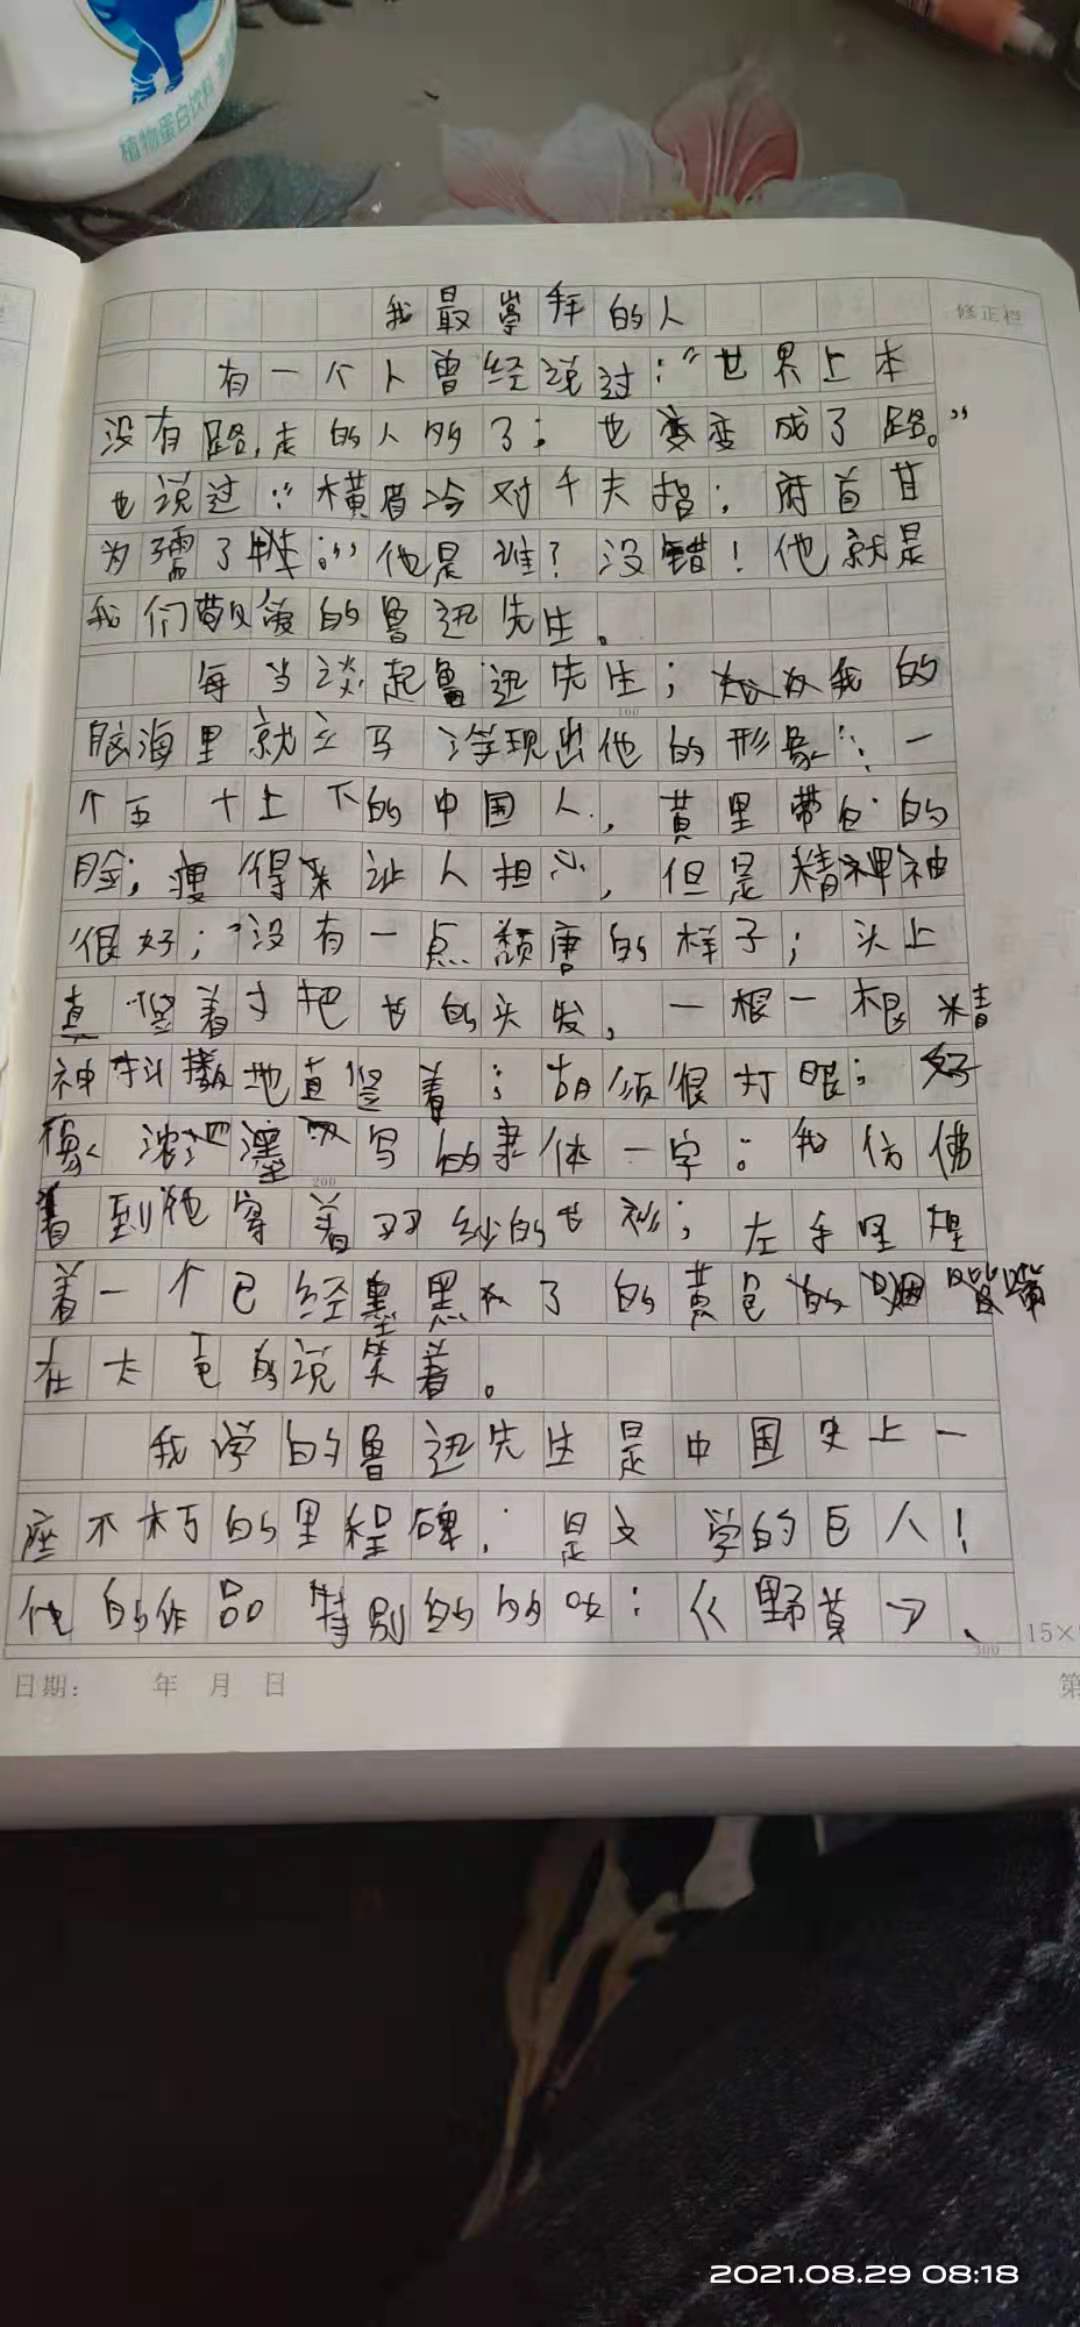 植物蛋白饮料
我最崇拜的人
修正栏
有一个人曾经说过："世界上本
没有路,走的人多了；也变成了路。"
也说过："横眉冷对千夫指；府首甘
为孺了牛。"他是谁？没错！他就是
我们敬爱的鲁迅先生。
每当谈起鲁迅先生；我的
100
脑海里就立马浮现出他的形象：一
个五十上下的中国人，黄里带白的
脸；瘦得来让人担心，但是精神
很好；没有一点颓唐的样子；头上
直竖着寸把长的头发，一根一根精
神抖擞地直竖着；胡须很打眼；好
像浓墨写的隶体一字。我仿佛
200
看到他穿着的长衫；左手里捏
着一个已经黑了的黄色的烟嘴
在大的说笑着。
我学的鲁迅先生是中国史上一
座不朽的里程碑，是文学的巨人！
他的作品特别的的：《野草》、
300
15×
日期： 年 月 日
第
2021.08.29 08:18